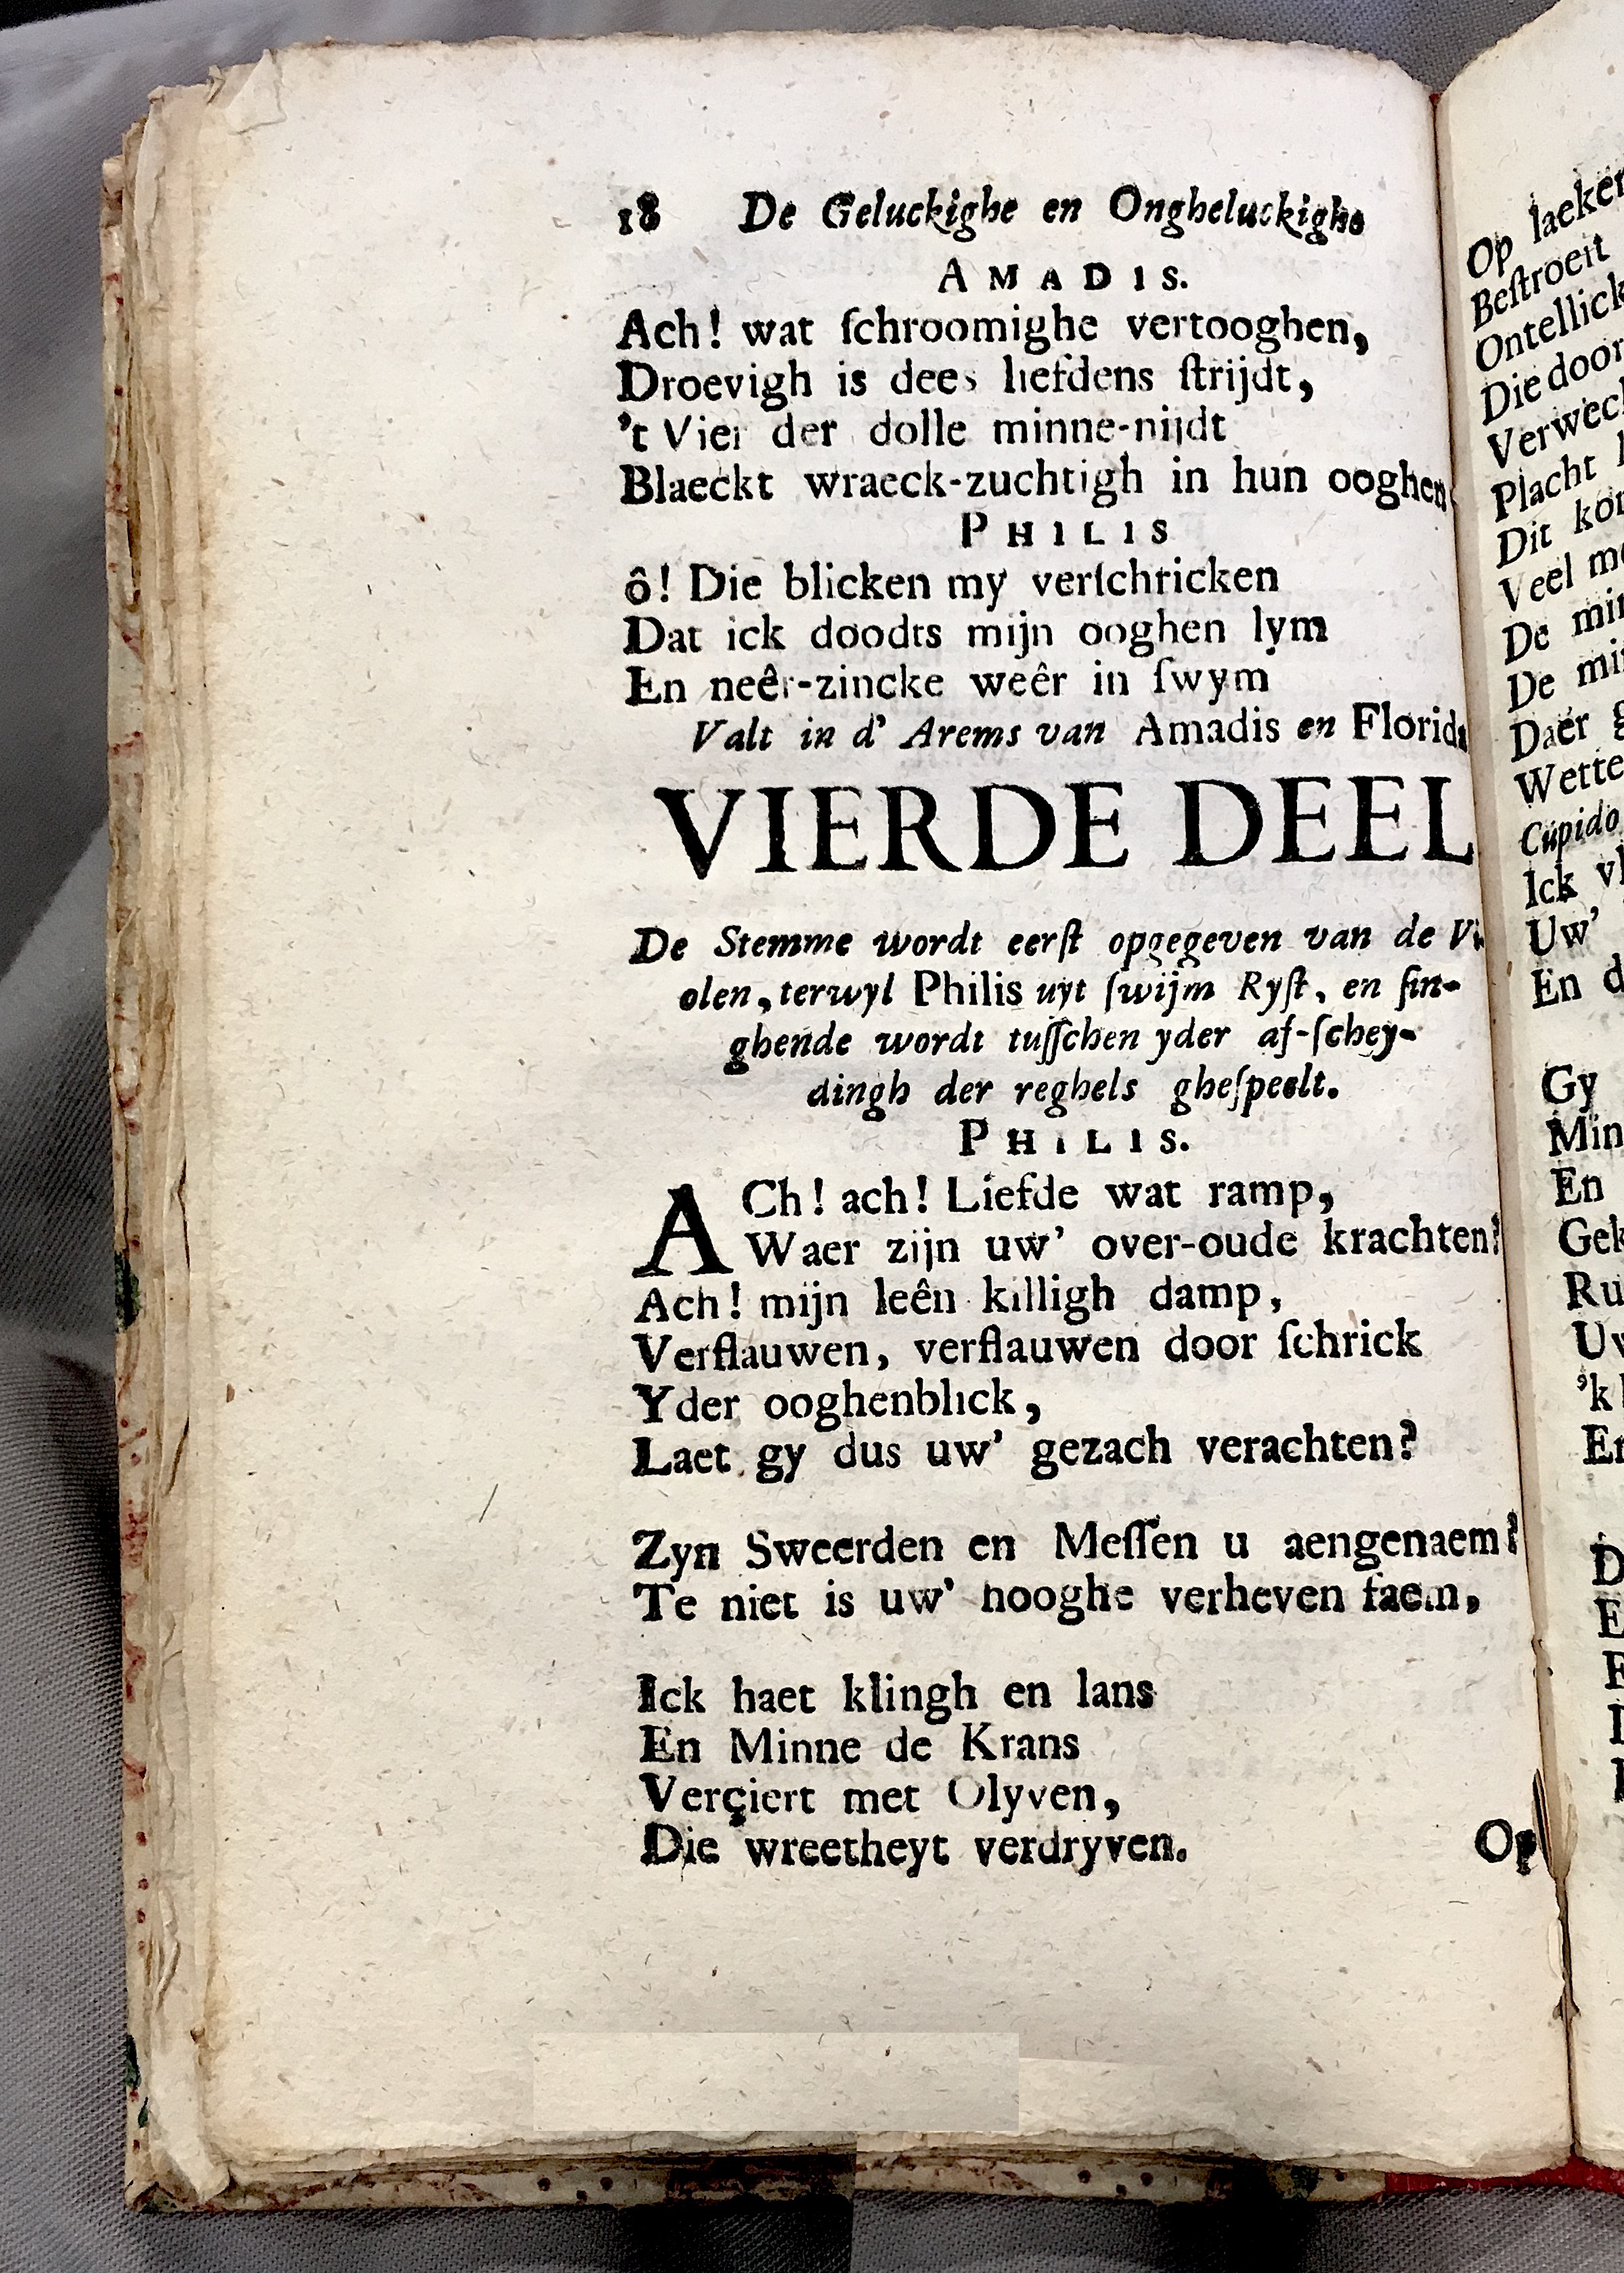 18 De Geluckighe en Ongheluckighe
AMADIS.
Ach! wat ſchroomighe vertooghen,
Droevigh is dees liefdens ſtrijdt,
't Vier der dolle minne-nijdt
Blaeckt wraeck-zuchtigh in hun ooghen
PHILIS
ô! Die blicken my verſchricken
Dat ick doodts mijn ooghen lym
En neêr-zincke weêr in ſwym
Valt in d' Arems van Amadis en
VIERDE DEEL
De Stemme wordt eerſt opgegeven van de Vi
olen, terwyl Philis uyt ſwijm Ryſt, en ſin-
ghende wordt tuſſchen yder af-ſchey-
dingh der reghels gheſpeelt.
PHILIS.
ACh! ach! Liefde wat ramp,
Waer zijn uw' over-oude krachten?
Ach! mijn leên killigh damp,
Verflauwen, verflauwen door ſchrick
Yder ooghenblick,
Laet gy dus uw' gezach verachten?
Zyn Sweerden en Meſſen u aengenaem?
Te niet is uw' hooghe verheven faem,
Ick haet klingh en lans
En Minne de Krans
Verçiert met Olyven,
Die wreetheyt verdryven.
Op
Op
Beſtroeit
Die door
Placht
Dit
Veel
De
De
Daer
Cupido
Ick
Uw'
En
Gy
En